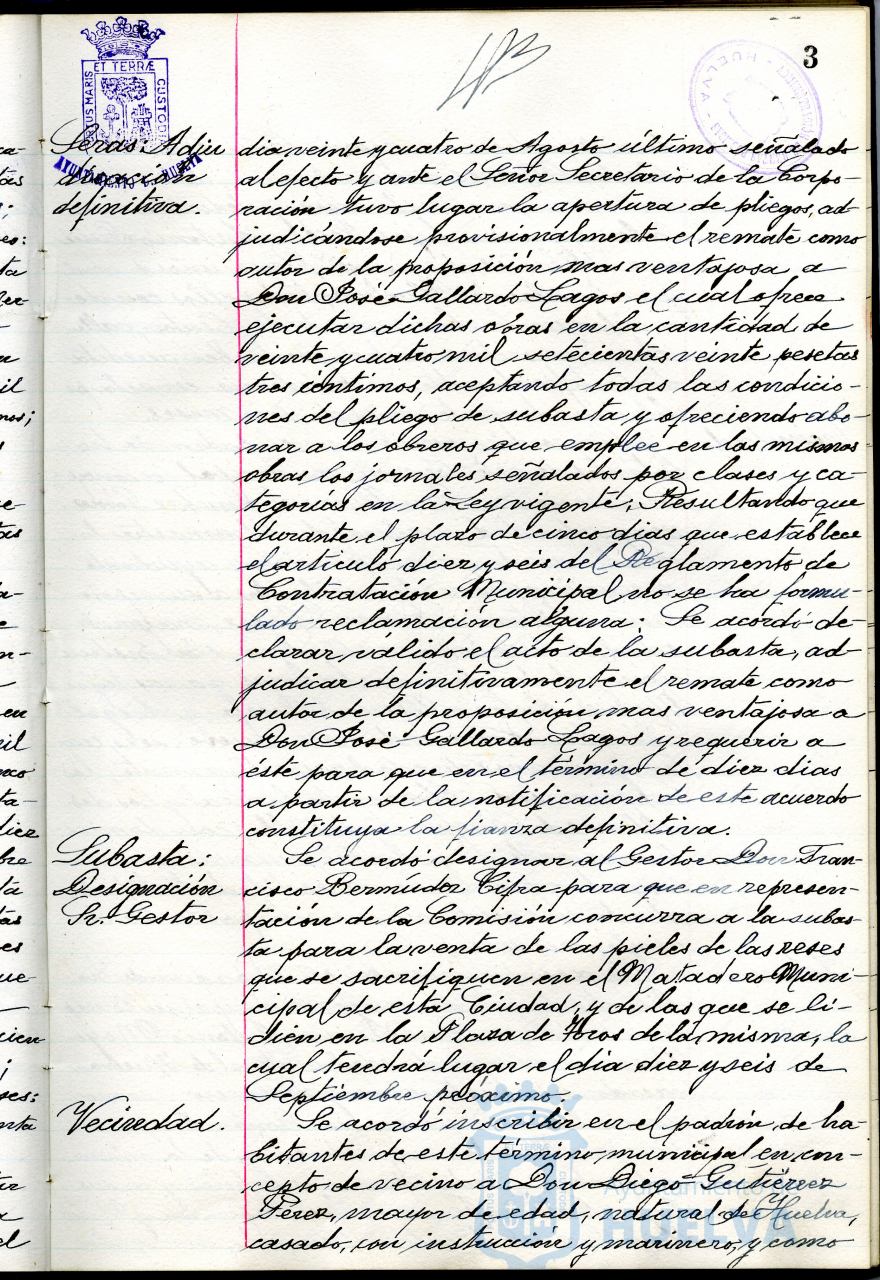 3
ET TERRÆ
CUSTODIA
AYUNTAMIENTO DE HUELVA
HUELVA
Seras: Adju
dicación
definitiva.
dia veinte y cuatro de Agosto último señalado
al efecto y ante el Señor Secretario de la Corpo-
ración tuvo lugar la apertura de pliegos, ad-
judicándose provisionalmente el remate como
autor de la proposición mas ventajosa a
Don José Gallardo Lagos el cual ofrece
ejecutar dichas obras en la cantidad de
veinte y cuatro mil setecientas veinte pesetas
tres céntimos, aceptando todas las condicio-
nes del pliego de subasta y ofreciendo abo-
nar a los obreros que emplee en las mismas
obras los jornales señalados por clases y ca-
tegorías en la Ley vigente; Resultando que
durante el plazo de cinco dias que establece
el articulo diez y seis del Reglamento de
Contratación Municipal no se ha formu-
lado reclamación alguna: Se acordó de-
clarar válido el acto de la subasta, ad-
judicar definitivamente el remate como
autor de la proposición mas ventajosa a
Don José Gallardo Lagos y requerir a
éste para que en el término de diez dias
a partir de la notificación de este acuerdo
constituya la fianza definitiva.
Subasta:
Designación
Sr. Gestor
Se acordó designar al Gestor Don Fran-
cisco Bermúdez Cifra para que en represen-
tación de la Comisión concurra a la subas-
ta para la venta de las pieles de las reses
que se sacrifiquen en el Matadero Muni-
cipal de esta Ciudad, y de las que se li-
dien en la Plaza de Toros de la misma, la
cual tendrá lugar el dia diez y seis de
Septiembre próximo.
Vecindad.
Se acordó inscribir en el padrón de ha-
bitantes de este término municipal en con-
cepto de vecino a Don Diego Gutiérrez
Pérez, mayor de edad, natural de Huelva,
casado, con instrucción y marinero, y como
Ayuntamiento
HUELVA